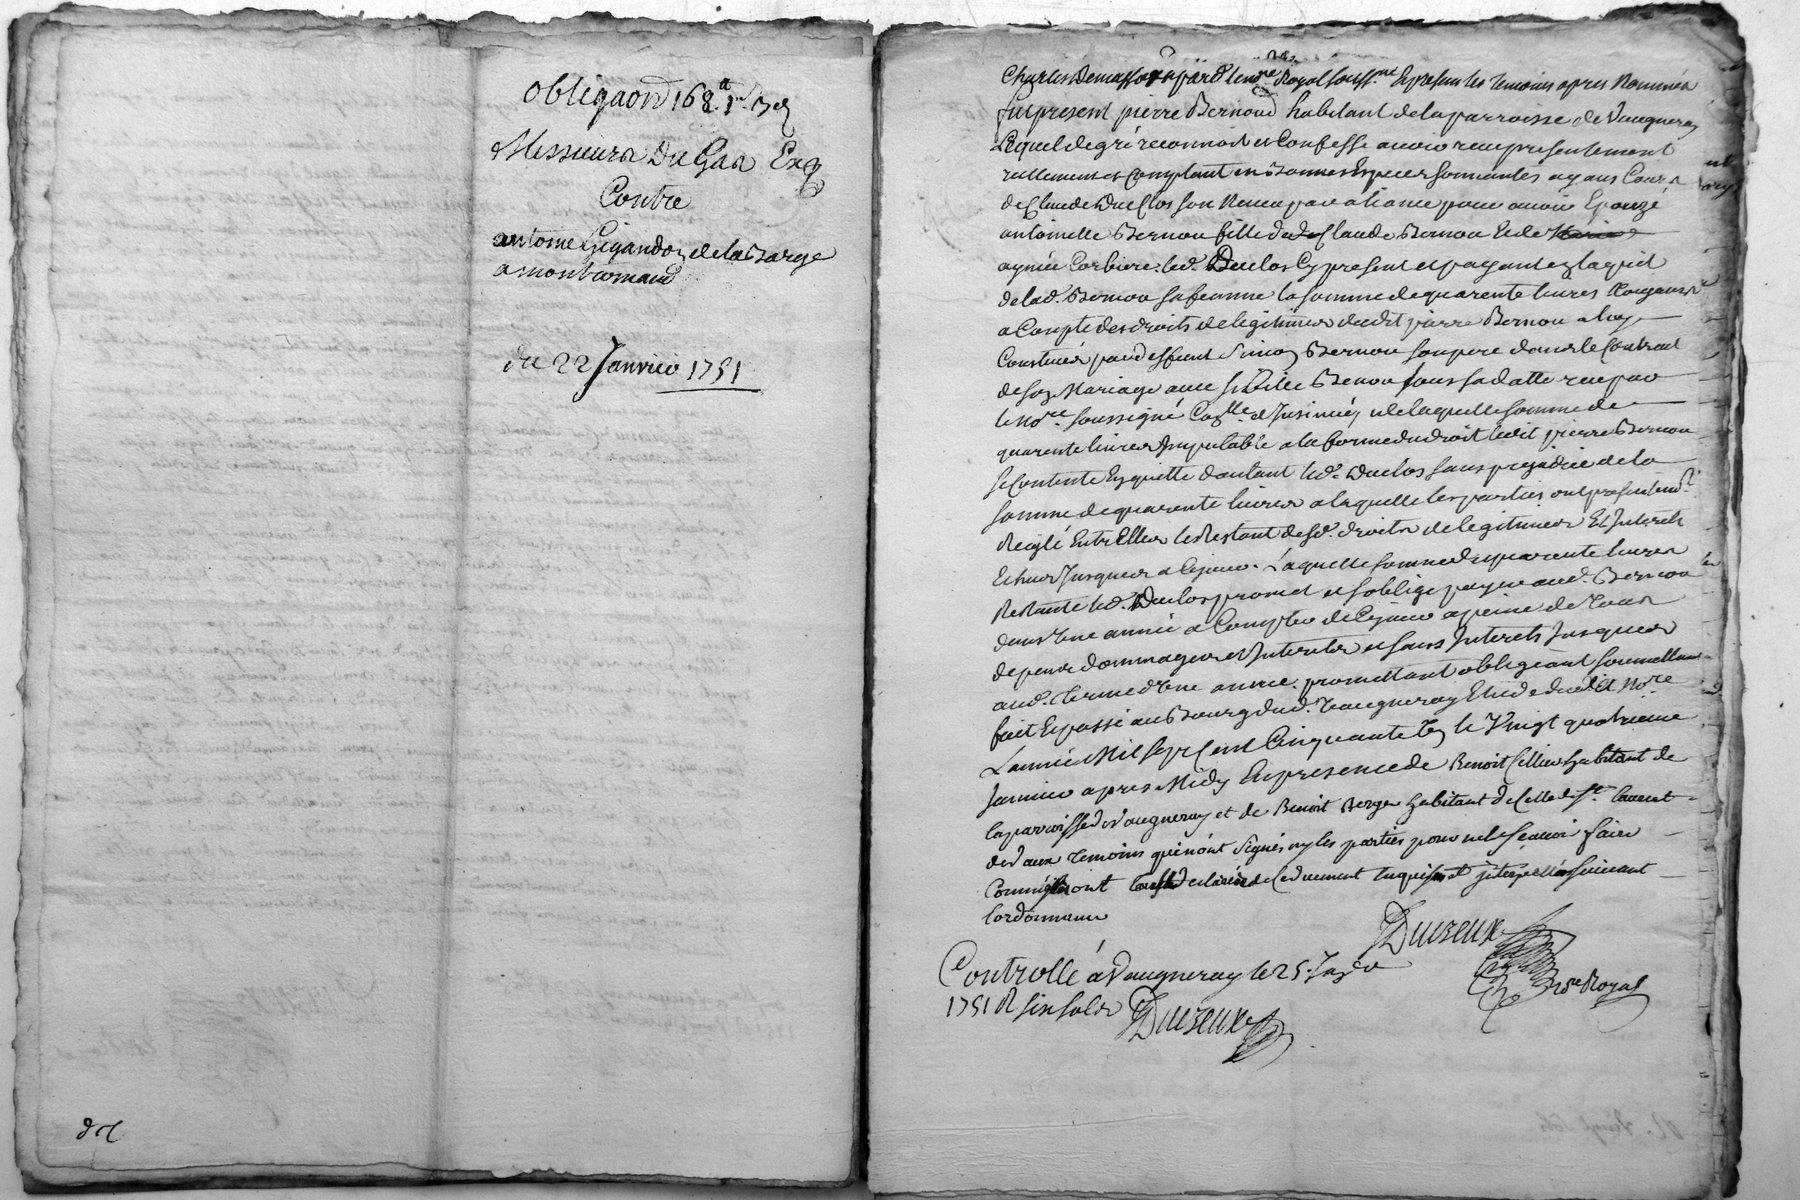 obligaon 168ᵗ 1ˢ 3ᵈ
Messieurs Du Gas Exq
Contre
antoine Gigandon de la Barge
a montromand
du 22 Janvier 1751
pard. le no.re Royal souss.né Et presens les temoins apres Nommés
fut present pierre Bernoud habitant de la parroisse de Vaugneray
Lequel de gré reconnoit et Confesse avoir receu presentement
reellement et Comptant en Bonnes Especes sonnantes ayans Cours
de Claude Duclos son Neveu par aliance pour avoir Epouzé
antoinette Bernou fille de Claude Bernou et de
aymée Corbiere. led. Duclos Cy present et payant en laquit
de lad. Bernou sa femme la somme de quarente livres
a Compte des droits de legitimes dudit pierre Bernou a luy
Constitués par deffunt Simon Bernou son pere dans le Contrat
de son Mariage avec Bernou sous sa datte receu par
le no.re soussigné Con.lle et Insinué, de laquelle somme de
quarente livres Imputable a la forme du droit ledit pierre Bernou
se Contente En quitte d'autant led. Duclos sans prejudice de la
somme de quarente livres a laquelle les parties ont presentem.t
Reiglé Entr'Elles le Restant desd. droits de legitimes Et Interets
Echus Jusques a Cejour. Laquelle somme de quarente livres
Restante led. Duclos promet et s'oblige payer aud. Bernou
dans Une année a Compter de Cejour a peine de tous
depens dommages et Interets et sans Interets Jusques
aud. terme d'Une année. promettant obligeant soumettant
fait Et passé au Bourg dud. Vaugneray Etude dudit No.re
L'année Mil sept Cent Cinquante Un le Vingt quatrieme
Janvier apres Midy En presence de Benoit Cellier habitant de
la parroisse de Vaugneray et de Benoit Berger habitant de Celle de S.t laurent
de Vaux temoins qui n'ont signés ny les parties pour ne le scavoir faire
Comme ils ont declaré de Ce duement Enquis et interpellés suivant
l'ordonnance
Duvreux
no.re Royal
Controllé à Vaugneray le 25. Janv.er
1751 R six sols
Duvreux